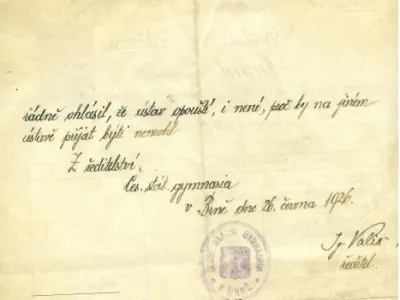 řádně ohlásil, že ústav opouští, i není, proč by na jiném
ústavě přijat býti nemohl
Z ředitelství
čes. stát. gymnasia
v Brně dne 26. června 1926.
Ig Valis
ředitel.
V BRNĚ